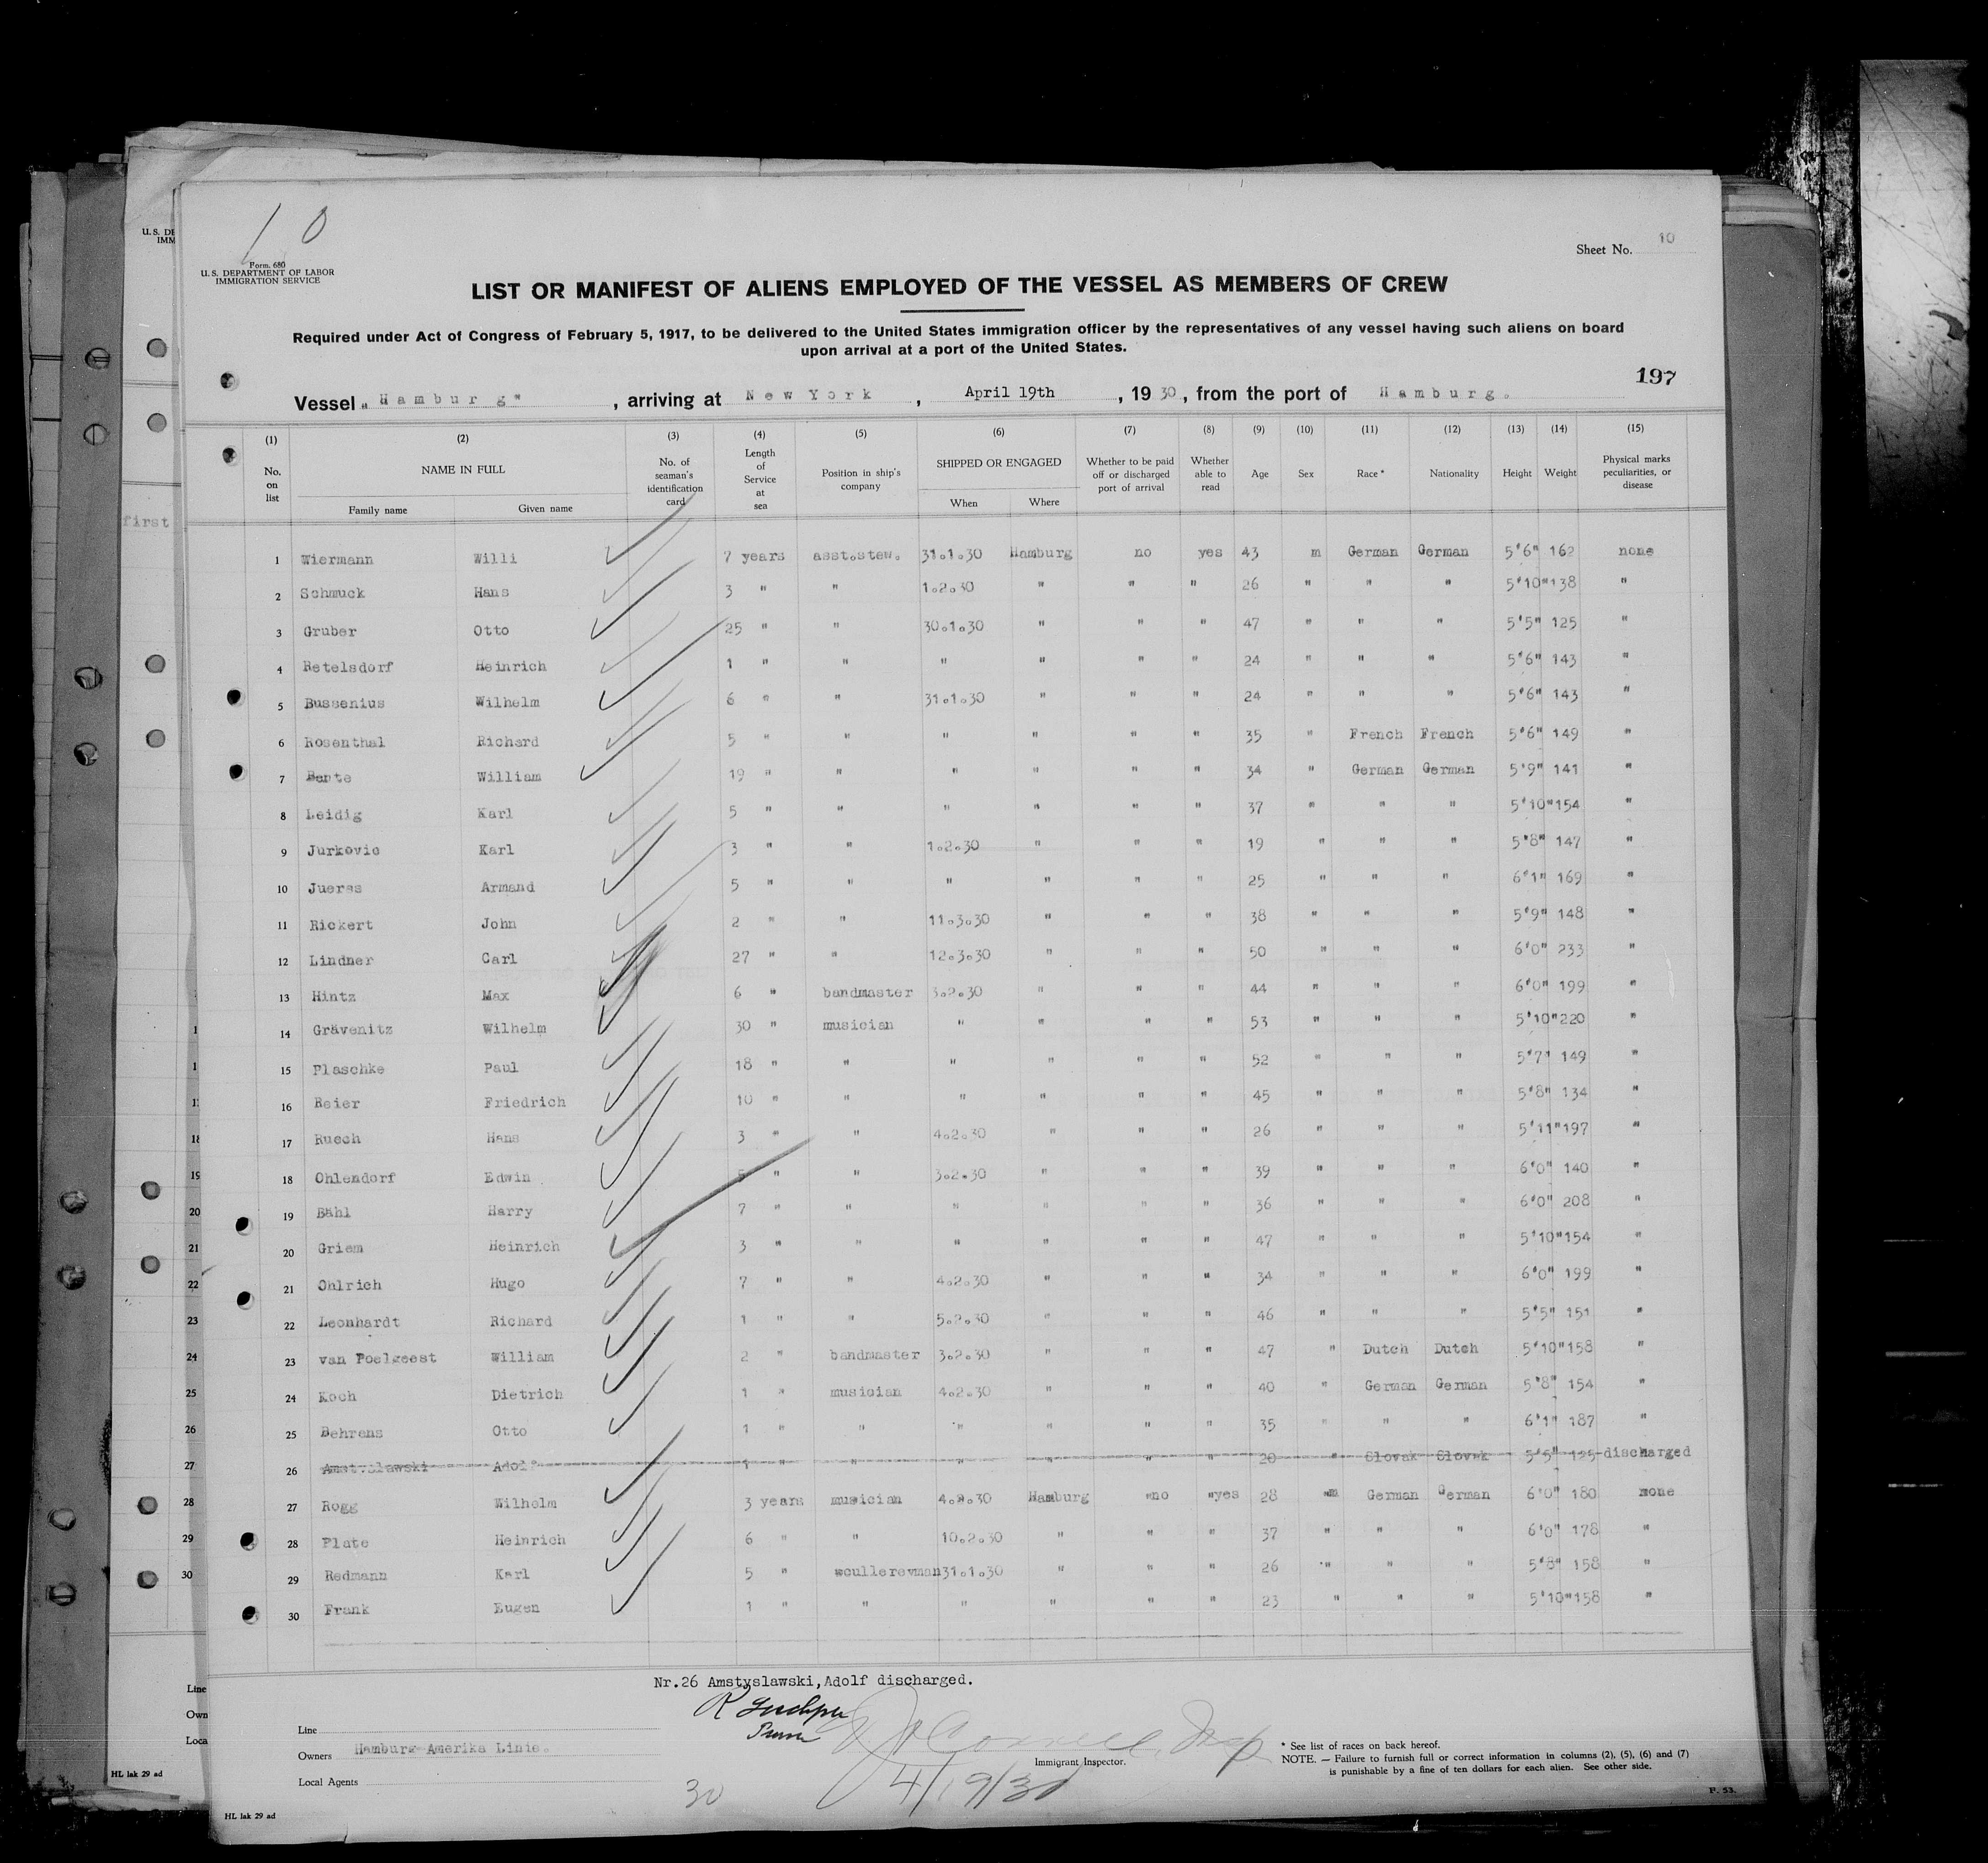 10
Form. 680
U. S. DEPARTMENT OF LABOR
IMMIGRATION SERVICE
Sheet No. 10
LIST OR MANIFEST OF ALIENS EMPLOYED OF THE VESSEL AS MEMBERS OF CREW
Required under Act of Congress of February 5, 1917, to be delivered to the United States immigration officer by the representatives of any vessel having such aliens on board
upon arrival at a port of the United States.
197
Vessel "Hamburg", arriving at New York, April 19th, 1930, from the port of Hamburg.
(1) (2) (3) (4) (5) (6) (7) (8) (9) (10) (11) (12) (13) (14) (15)
No. on list NAME IN FULL Family name Given name No. of seaman's identification card Length of Service at sea Position in ship's company SHIPPED OR ENGAGED When Where Whether to be paid off or discharged port of arrival Whether able to read Age Sex Race * Nationality Height Weight Physical marks peculiarities, or disease
first
1 Wiermann Willi 7 years asst.stew. 31.1.30 Hamburg no yes 43 m German German 5'6" 162 none
2 Schmuck Hans 3 " " 1.2.30 " " " 26 " " " 5'10" 138 "
3 Gruber Otto 25 " " 30.1.30 " " " 47 " " " 5'5" 125 "
4 Retelsdorf Heinrich 1 " " " " " " 24 " " " 5'6" 143 "
5 Bussenius Wilhelm 6 " " 31.1.30 " " " 24 " " " 5'6" 143 "
6 Rosenthal Richard 5 " " " " " " 35 " French French 5'6" 149 "
7 Bente William 19 " " " " " " 34 " German German 5'9" 141 "
8 Leidig Karl 5 " " " " " " 37 " " " 5'10" 154 "
9 Jurkovic Karl 3 " " 1.2.30 " " " 19 " " " 5'8" 147 "
10 Juerss Armand 5 " " " " " " 25 " " " 6'1" 169 "
11 Rickert John 2 " " 11.3.30 " " " 38 " " " 5'9" 148 "
12 Lindner Carl 27 " " 12.3.30 " " " 50 " " " 6'0" 233 "
13 Hintz Max 6 " bandmaster 3.2.30 " " " 44 " " " 6'0" 199 "
14 Grävenitz Wilhelm 30 " musician " " " " 53 " " " 5'10" 220 "
15 Plaschke Paul 18 " " " " " " 52 " " " 5'7" 149 "
16 Beier Friedrich 10 " " " " " " 45 " " " 5'8" 134 "
17 Ruech Hans 3 " " 4.2.30 " " " 26 " " " 5'11" 197 "
18 Ohlendorf Edwin 5 " " 3.2.30 " " " 39 " " " 6'0" 140 "
19 Bähl Harry 7 " " " " " " 36 " " " 6'0" 208 "
20 Griem Heinrich 3 " " " " " " 47 " " " 5'10" 154 "
21 Ohlrich Hugo 7 " " 4.2.30 " " " 34 " " " 6'0" 199 "
22 Leonhardt Richard 1 " " 5.2.30 " " " 46 " " " 5'5" 151 "
23 van Poelgeest William 2 " bandmaster 3.2.30 " " " 47 " Dutch Dutch 5'10" 158 "
24 Koch Dietrich 1 " musician 4.2.30 " " " 40 " German German 5'8" 154 "
25 Behrens Otto 1 " " " " " " 35 " " " 6'1" 187 "
26 Amstyslawski Adolf 1 " " " " " " 20 " Slovak Slovak 5'5" 125 discharged
27 Rogg Wilhelm 3 years musician 4.2.30 Hamburg no yes 28 m German German 6'0" 180 none
28 Plate Heinrich 6 " " 10.2.30 " " " 37 " " " 6'0" 178 "
29 Redmann Karl 5 " scullereyman 31.1.30 " " " 26 " " " 5'8" 158 "
30 Frank Eugen 1 " " " " " " 23 " " " 5'10" 158 "
Nr.26 Amstyslawski, Adolf discharged.
Line
Owners Hamburg-Amerika Linie.
Local Agents
Immigrant Inspector.
30
4/19/30
* See list of races on back hereof.
NOTE. — Failure to furnish full or correct information in columns (2), (5), (6) and (7)
is punishable by a fine of ten dollars for each alien. See other side.
HL lak 29 ad
HL lak 29 ad
F. 53.